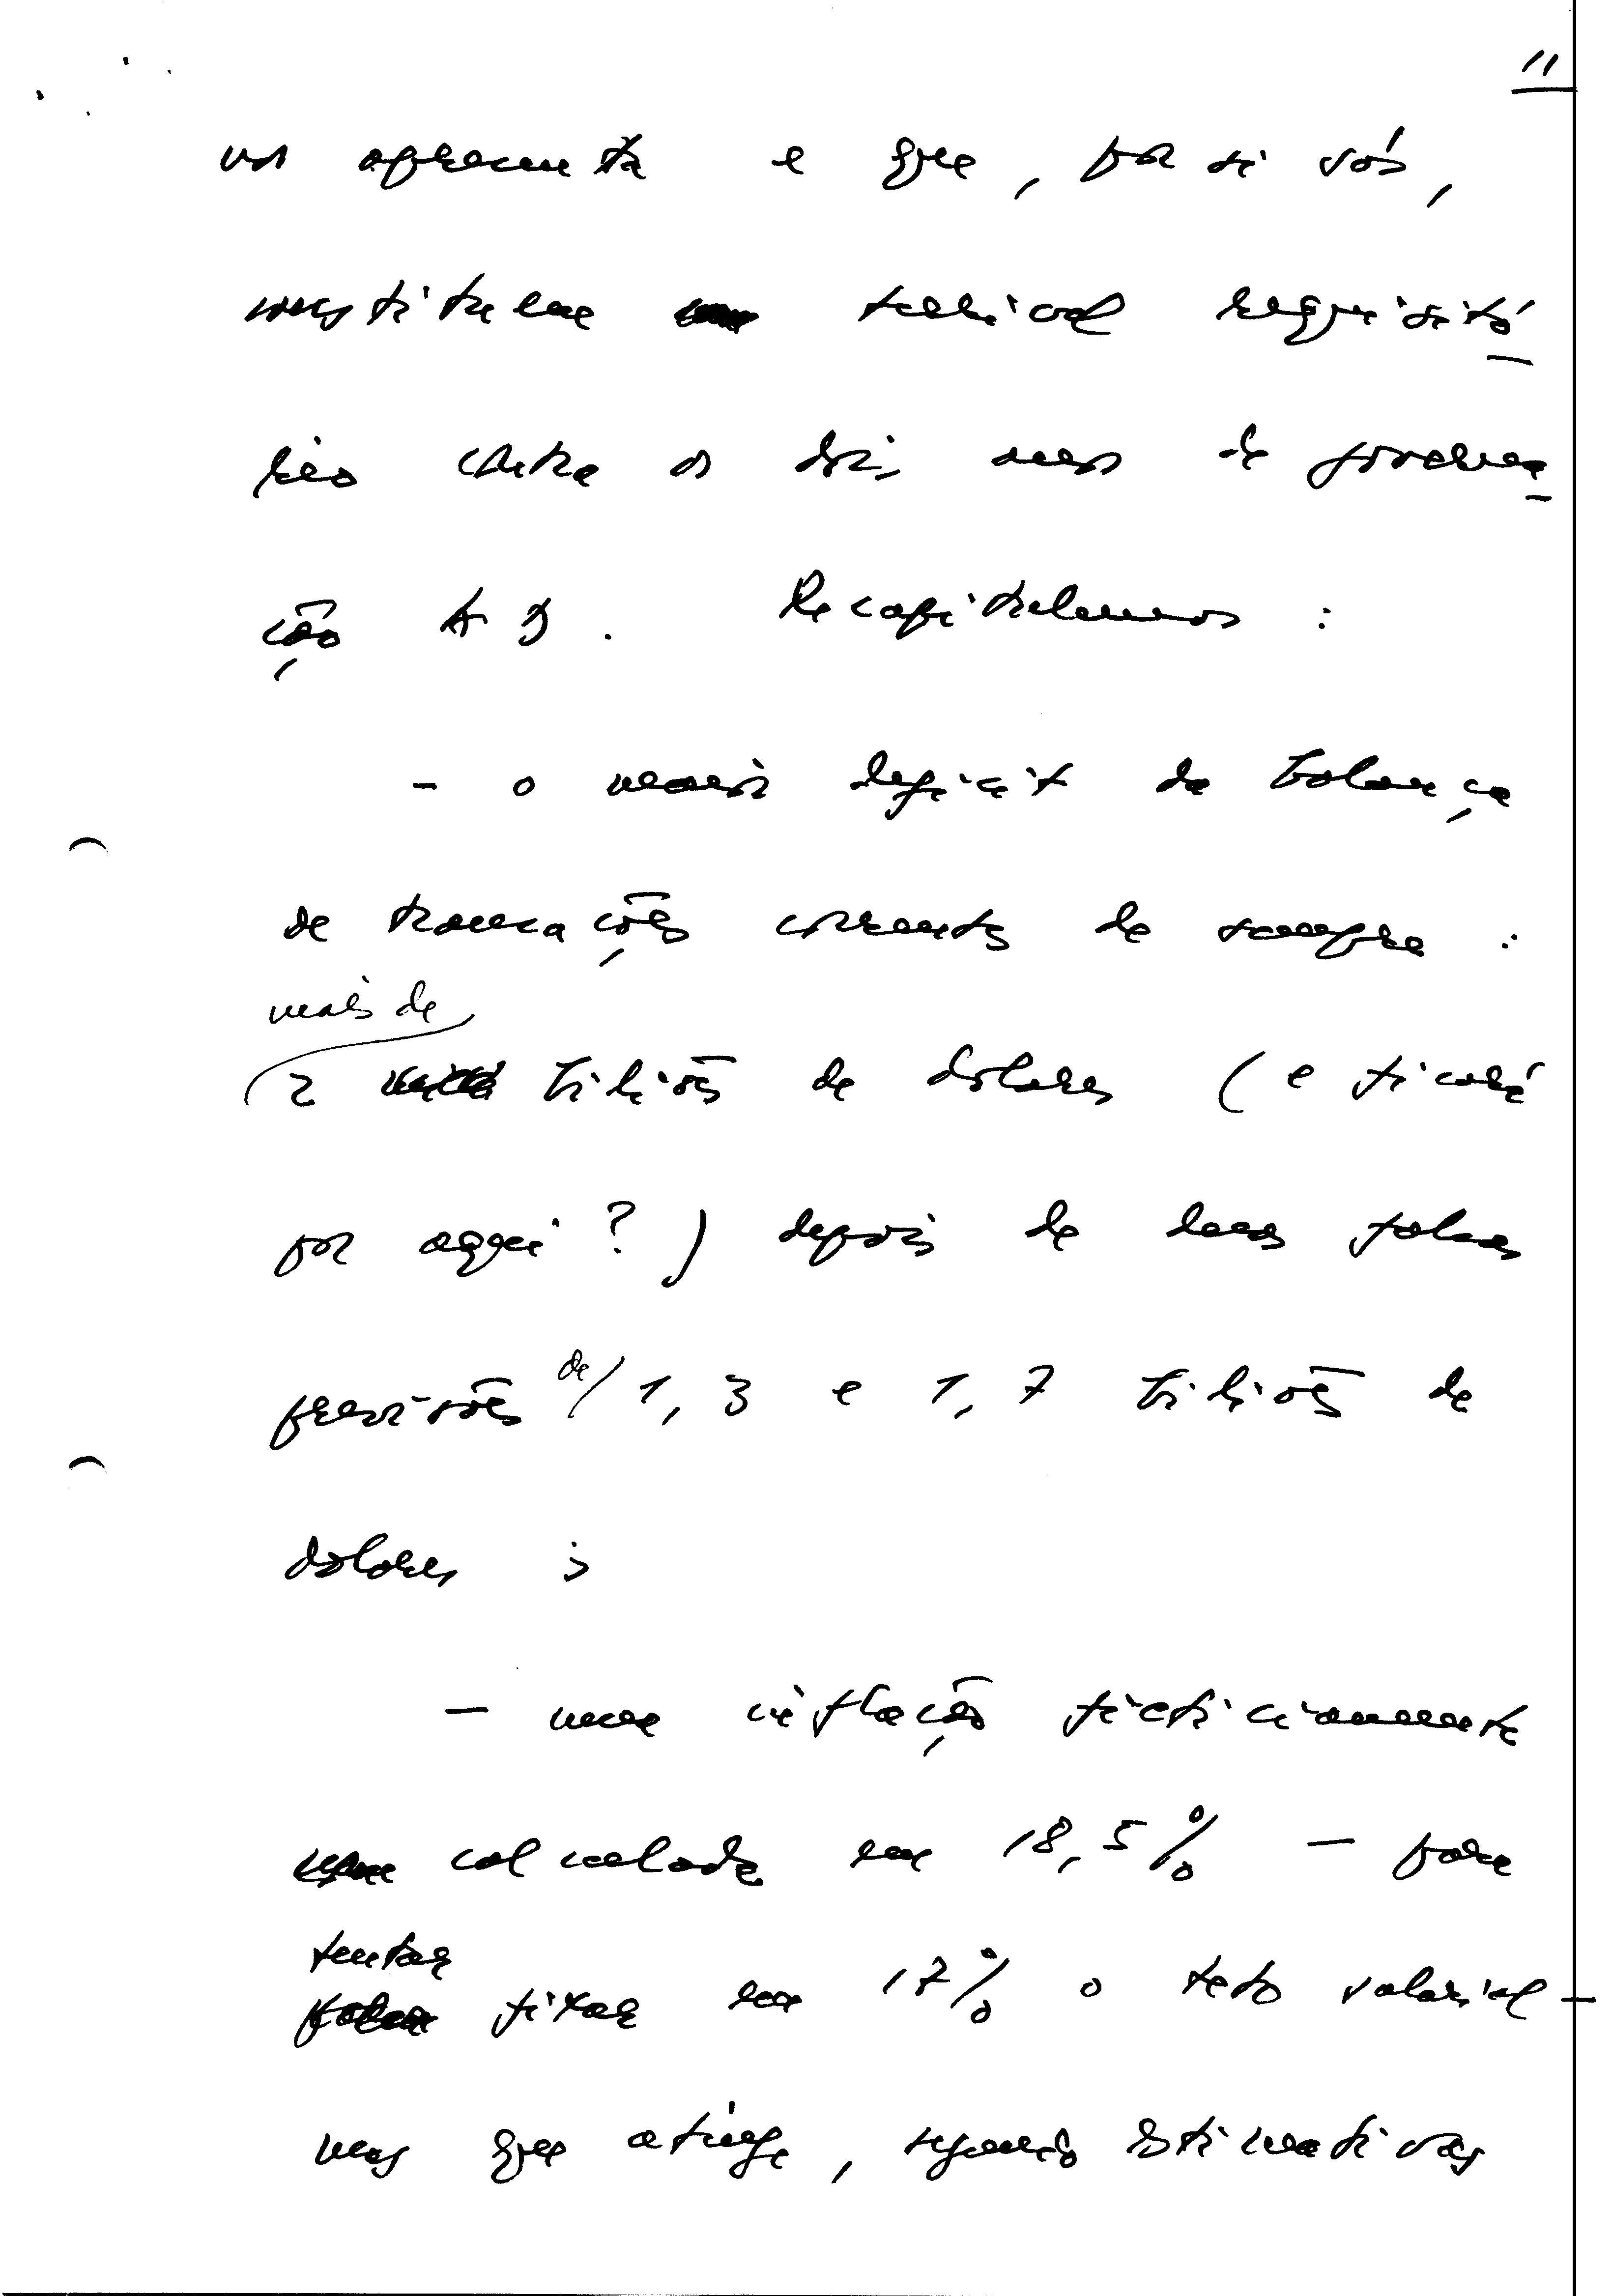 11
nos apresenta e que, por si só,
constituem terrível requisitó-
rio contra os dois anos de governa-
ção AD. Recapitulemos:
- o maior deficit da balança
de transacções correntes de sempre:
mais de
2 biliões de dólares (e ficará
por aqui?) depois de duas falsas
previsões de 1,3 e 1,7 biliões de
dólares;
- uma inflação ficticiamente
calculada em 18,5% - para
tentar
fixar em 17% o teto salarial -
mas que atinge, segundo estimativas